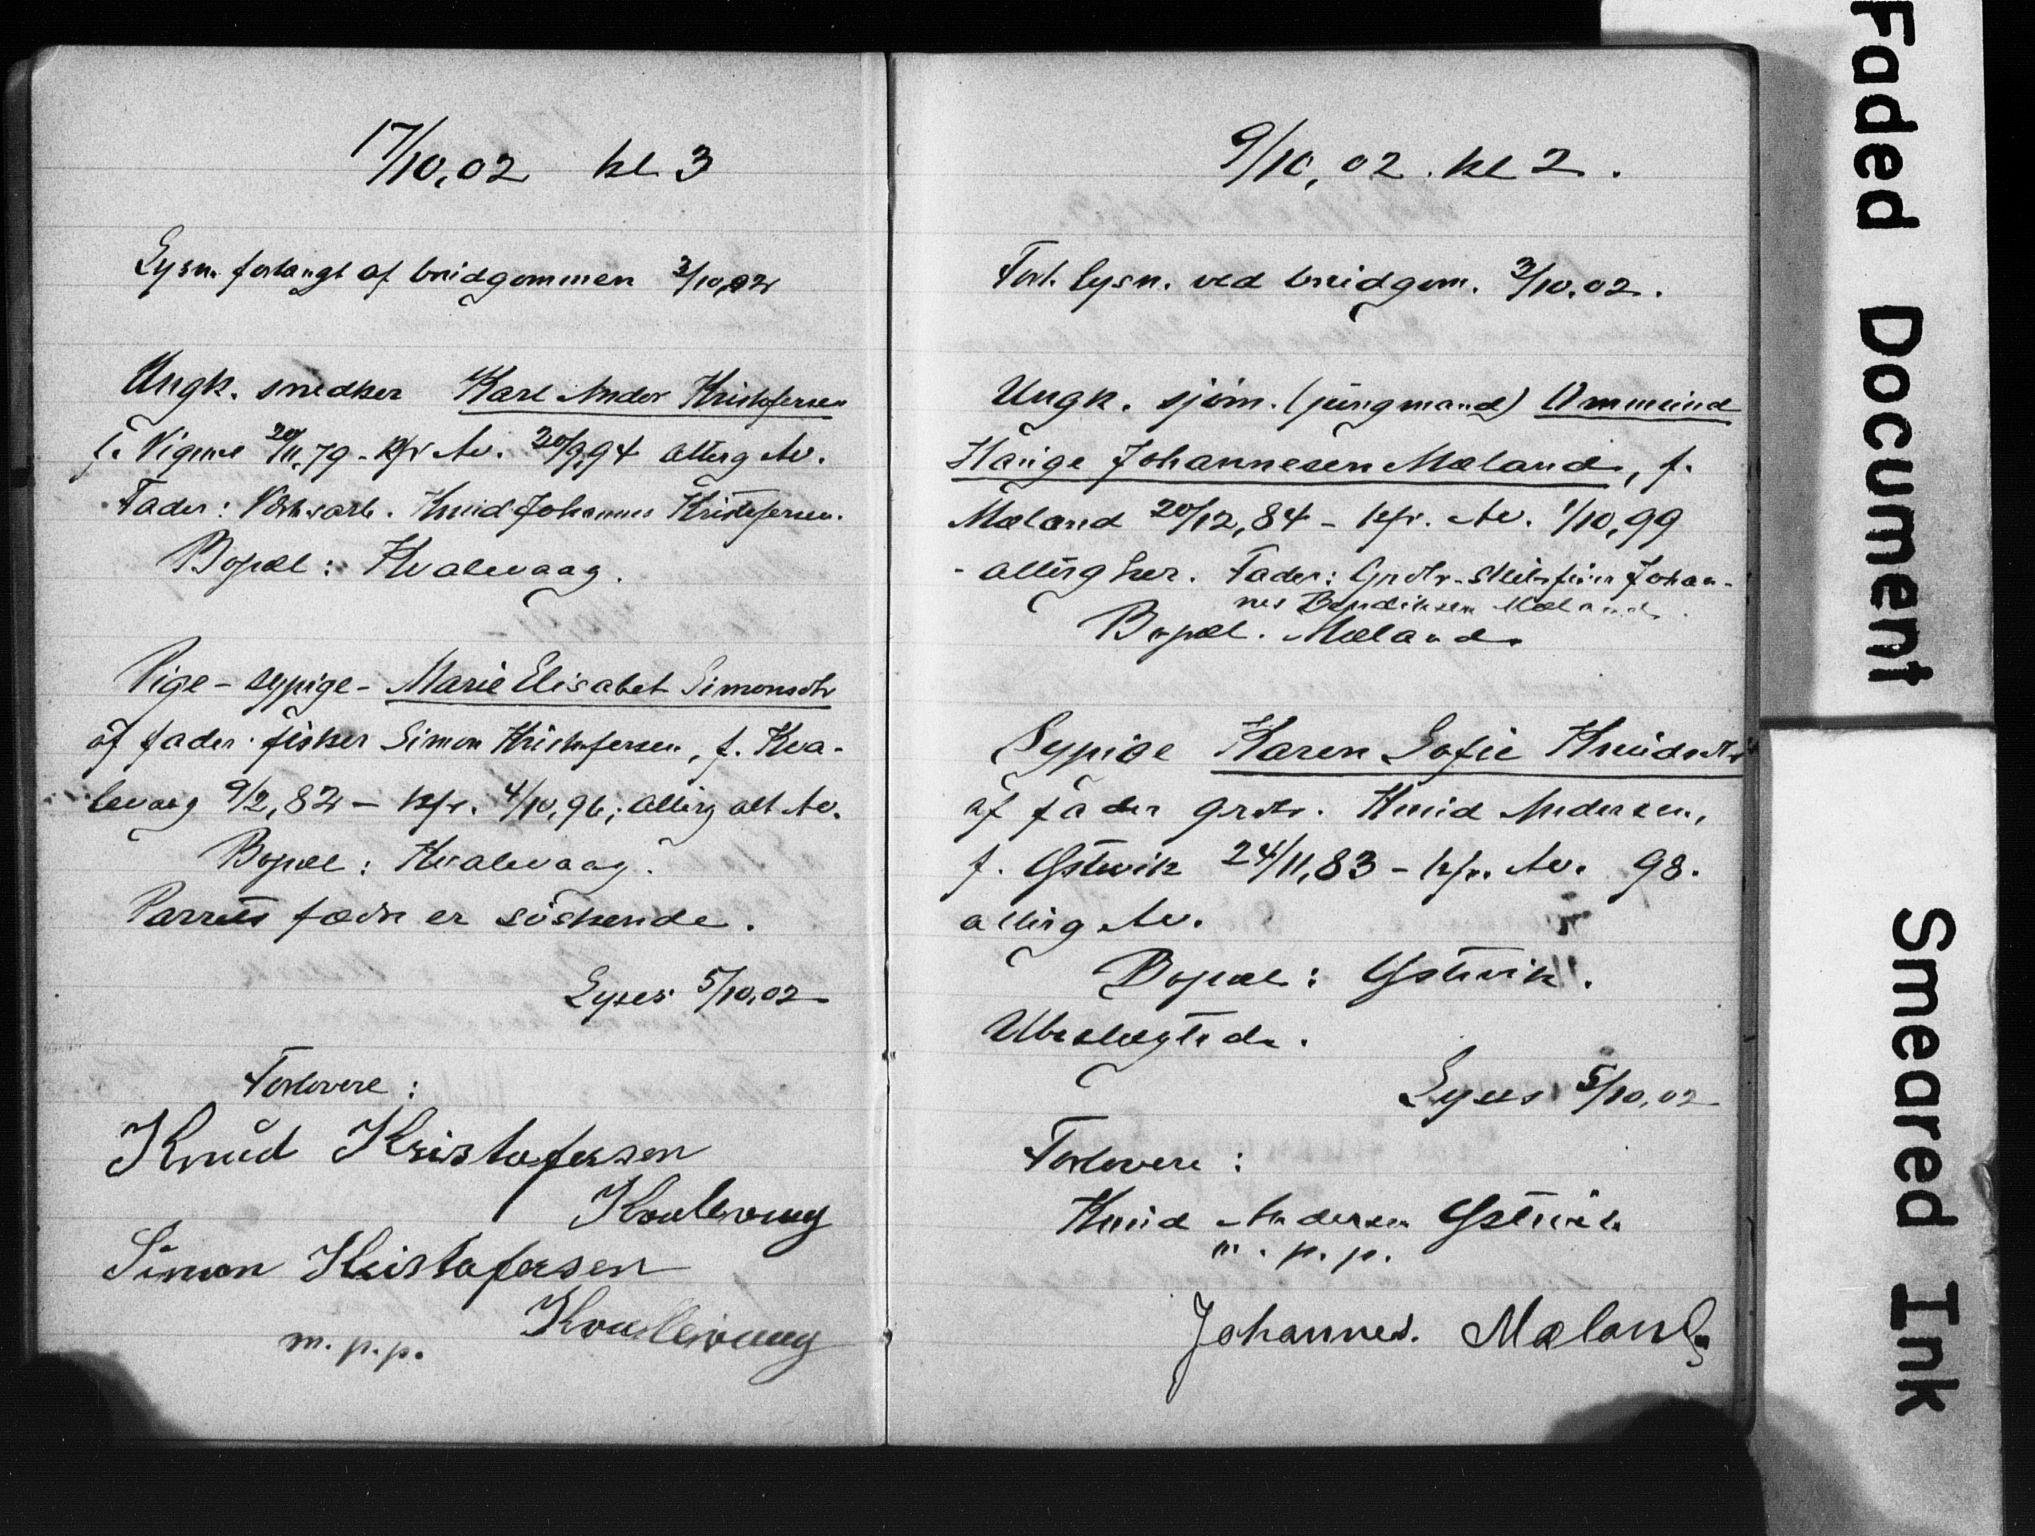 17/10,02 kl 3
Lysn. forlangt af brudgommen 3/10,02
Ungk. snedker Karl Andor Kristofersen
f. Vigene 20/11,79 - kfr Av. 30/9,94 altng Av.
Fader: Knud Johannes Kristofersen.
Bopæl: Kvalevaag.
Pige - sypige - Marie Elisabet Simonsdtr
af fader fisker Simon Kristofersen, f. Kva-
levaag 9/2,82 - kfr. 4/10,96; alting alt Av.
Bopæl: Kvalevaag.
Parrets fædre er söskende.
Lyses 5/10,02
Forlovere:
Knud Kristofersen
Kvalevaag
Simon Kristofersen
Kvalevaag
m.p.p.
9/10,02. kl 2.
Forl. lysn. ved brudgom. 3/10.02.
Ungk. sjöm. (jungmand) Ommund
Hauge Johannesen Mæland, f.
Mæland 20/12,84 - kfr. Av. 1/10,99
- alting her. Fader: Grdbr. Johan-
nes Bendiksen Mæland.
Bopæl. Mæland.
Sypige Karen Sofie Knudsdtr
af fader grdbr. Knud Andersen,
f. Østevik 24/11,83 - kfr. Av. 98.
alting Av.
Bopæl: Østevik.
Ubeslægtede.
Lyses 5/10,02
Forlovere:
Knud Andersen Østevik
m. p. p.
Johannes. Mæland
Faded Document
Smeared Ink